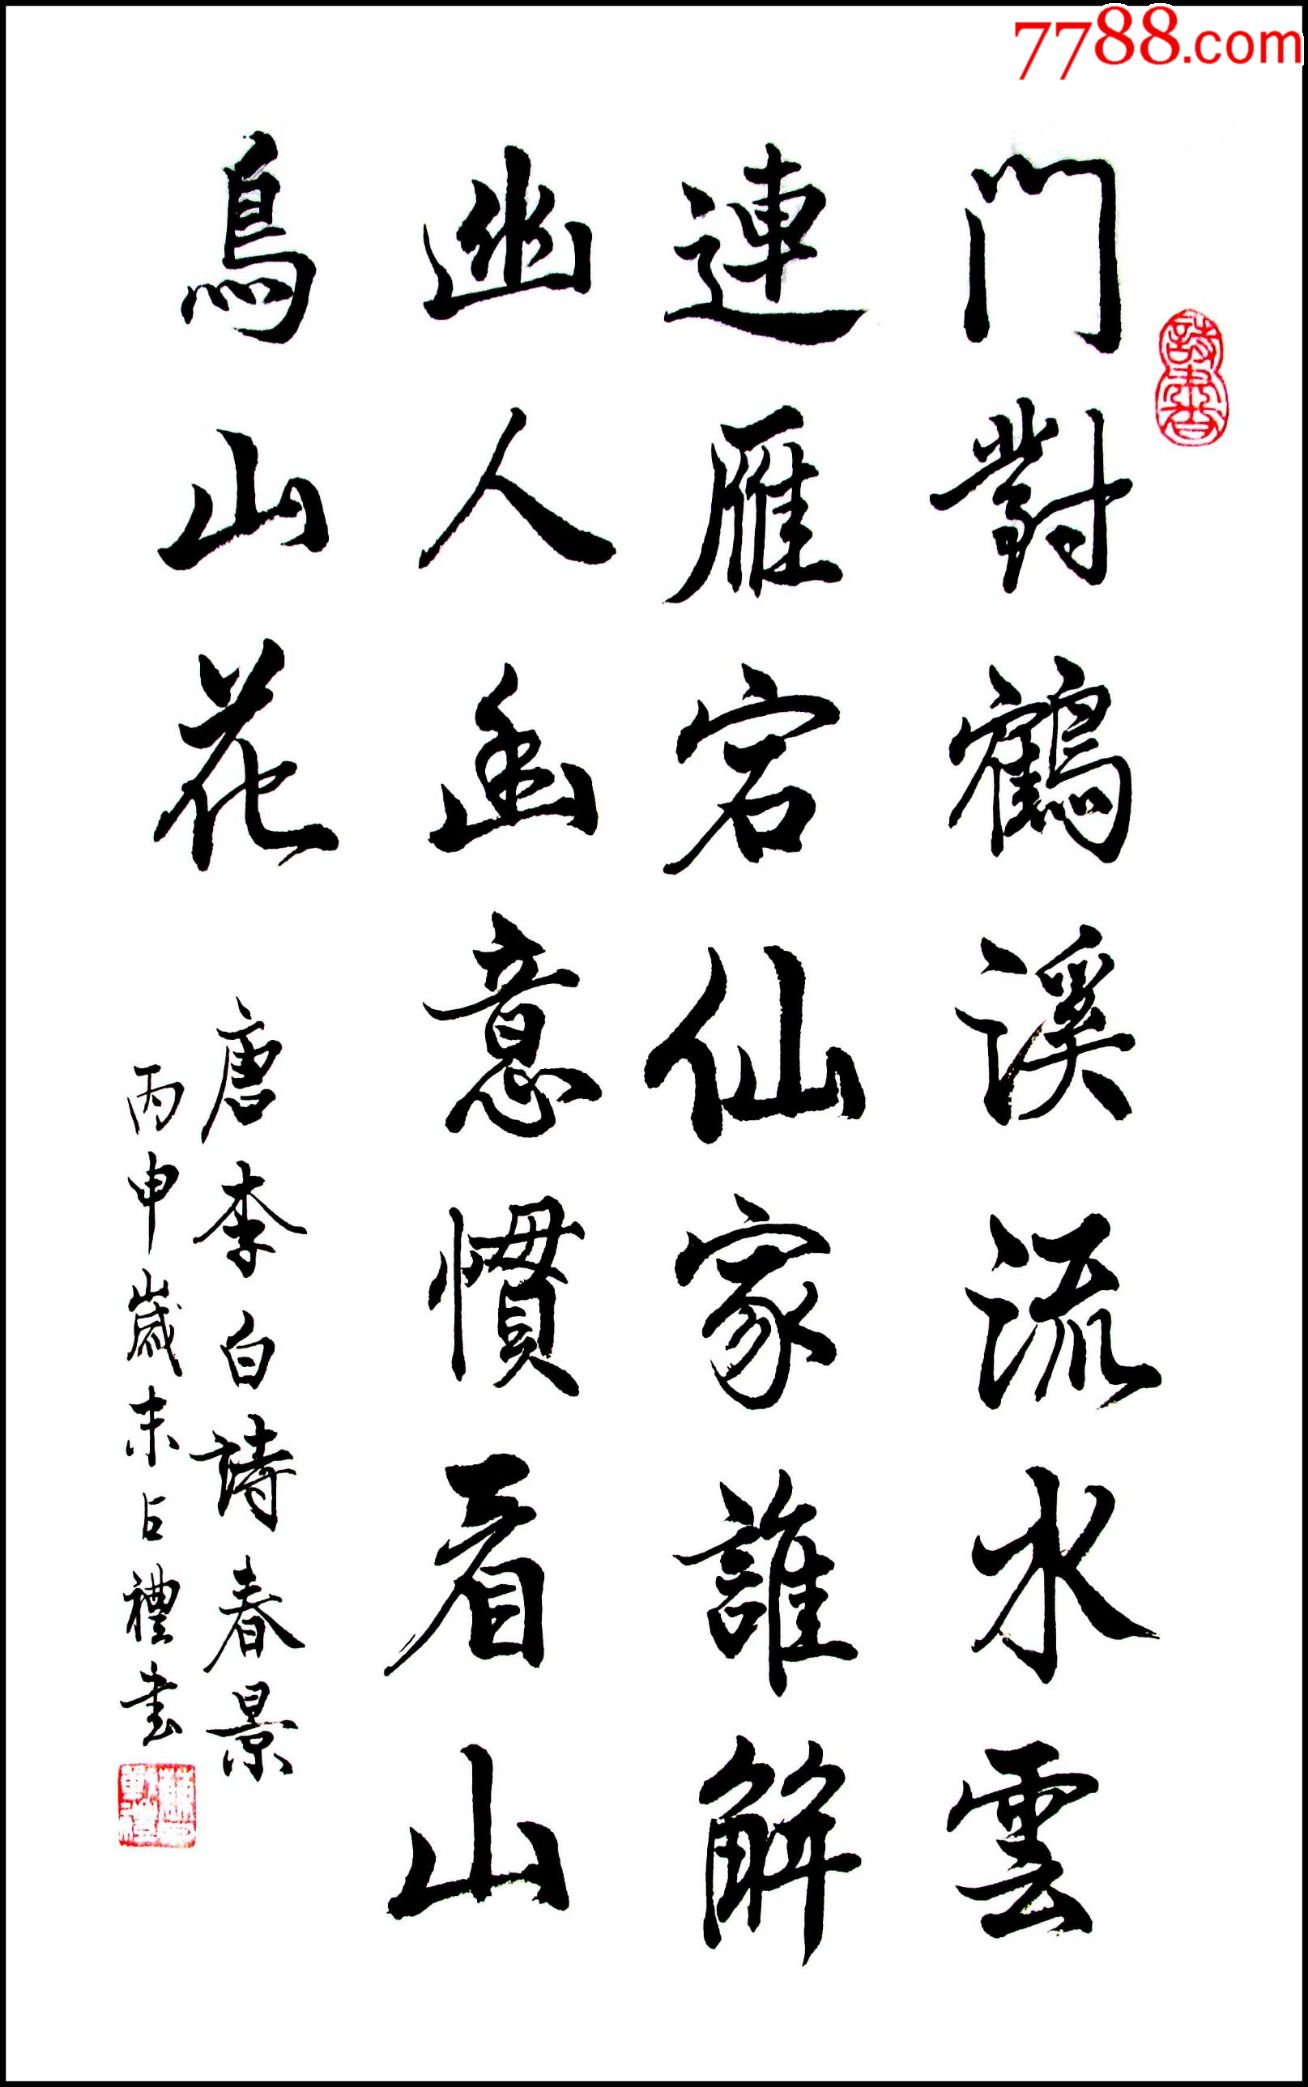 7788.com
詩書香
門對鶴溪流水雲
連雁宕仙家誰解
幽人幽意慣看山
鳥山花
唐李白詩春景
丙申歲末占禮書